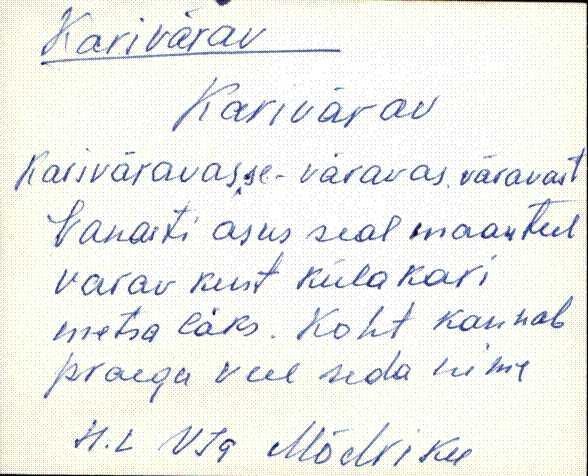 Karivärav
Karivärav
Kariväravasse - väravas, väravast
Vanasti asus seal maanteel
värav kust külakari
metsa läks. Koht kannab
praegu veel seda nime
H.L VJg Mõdriku